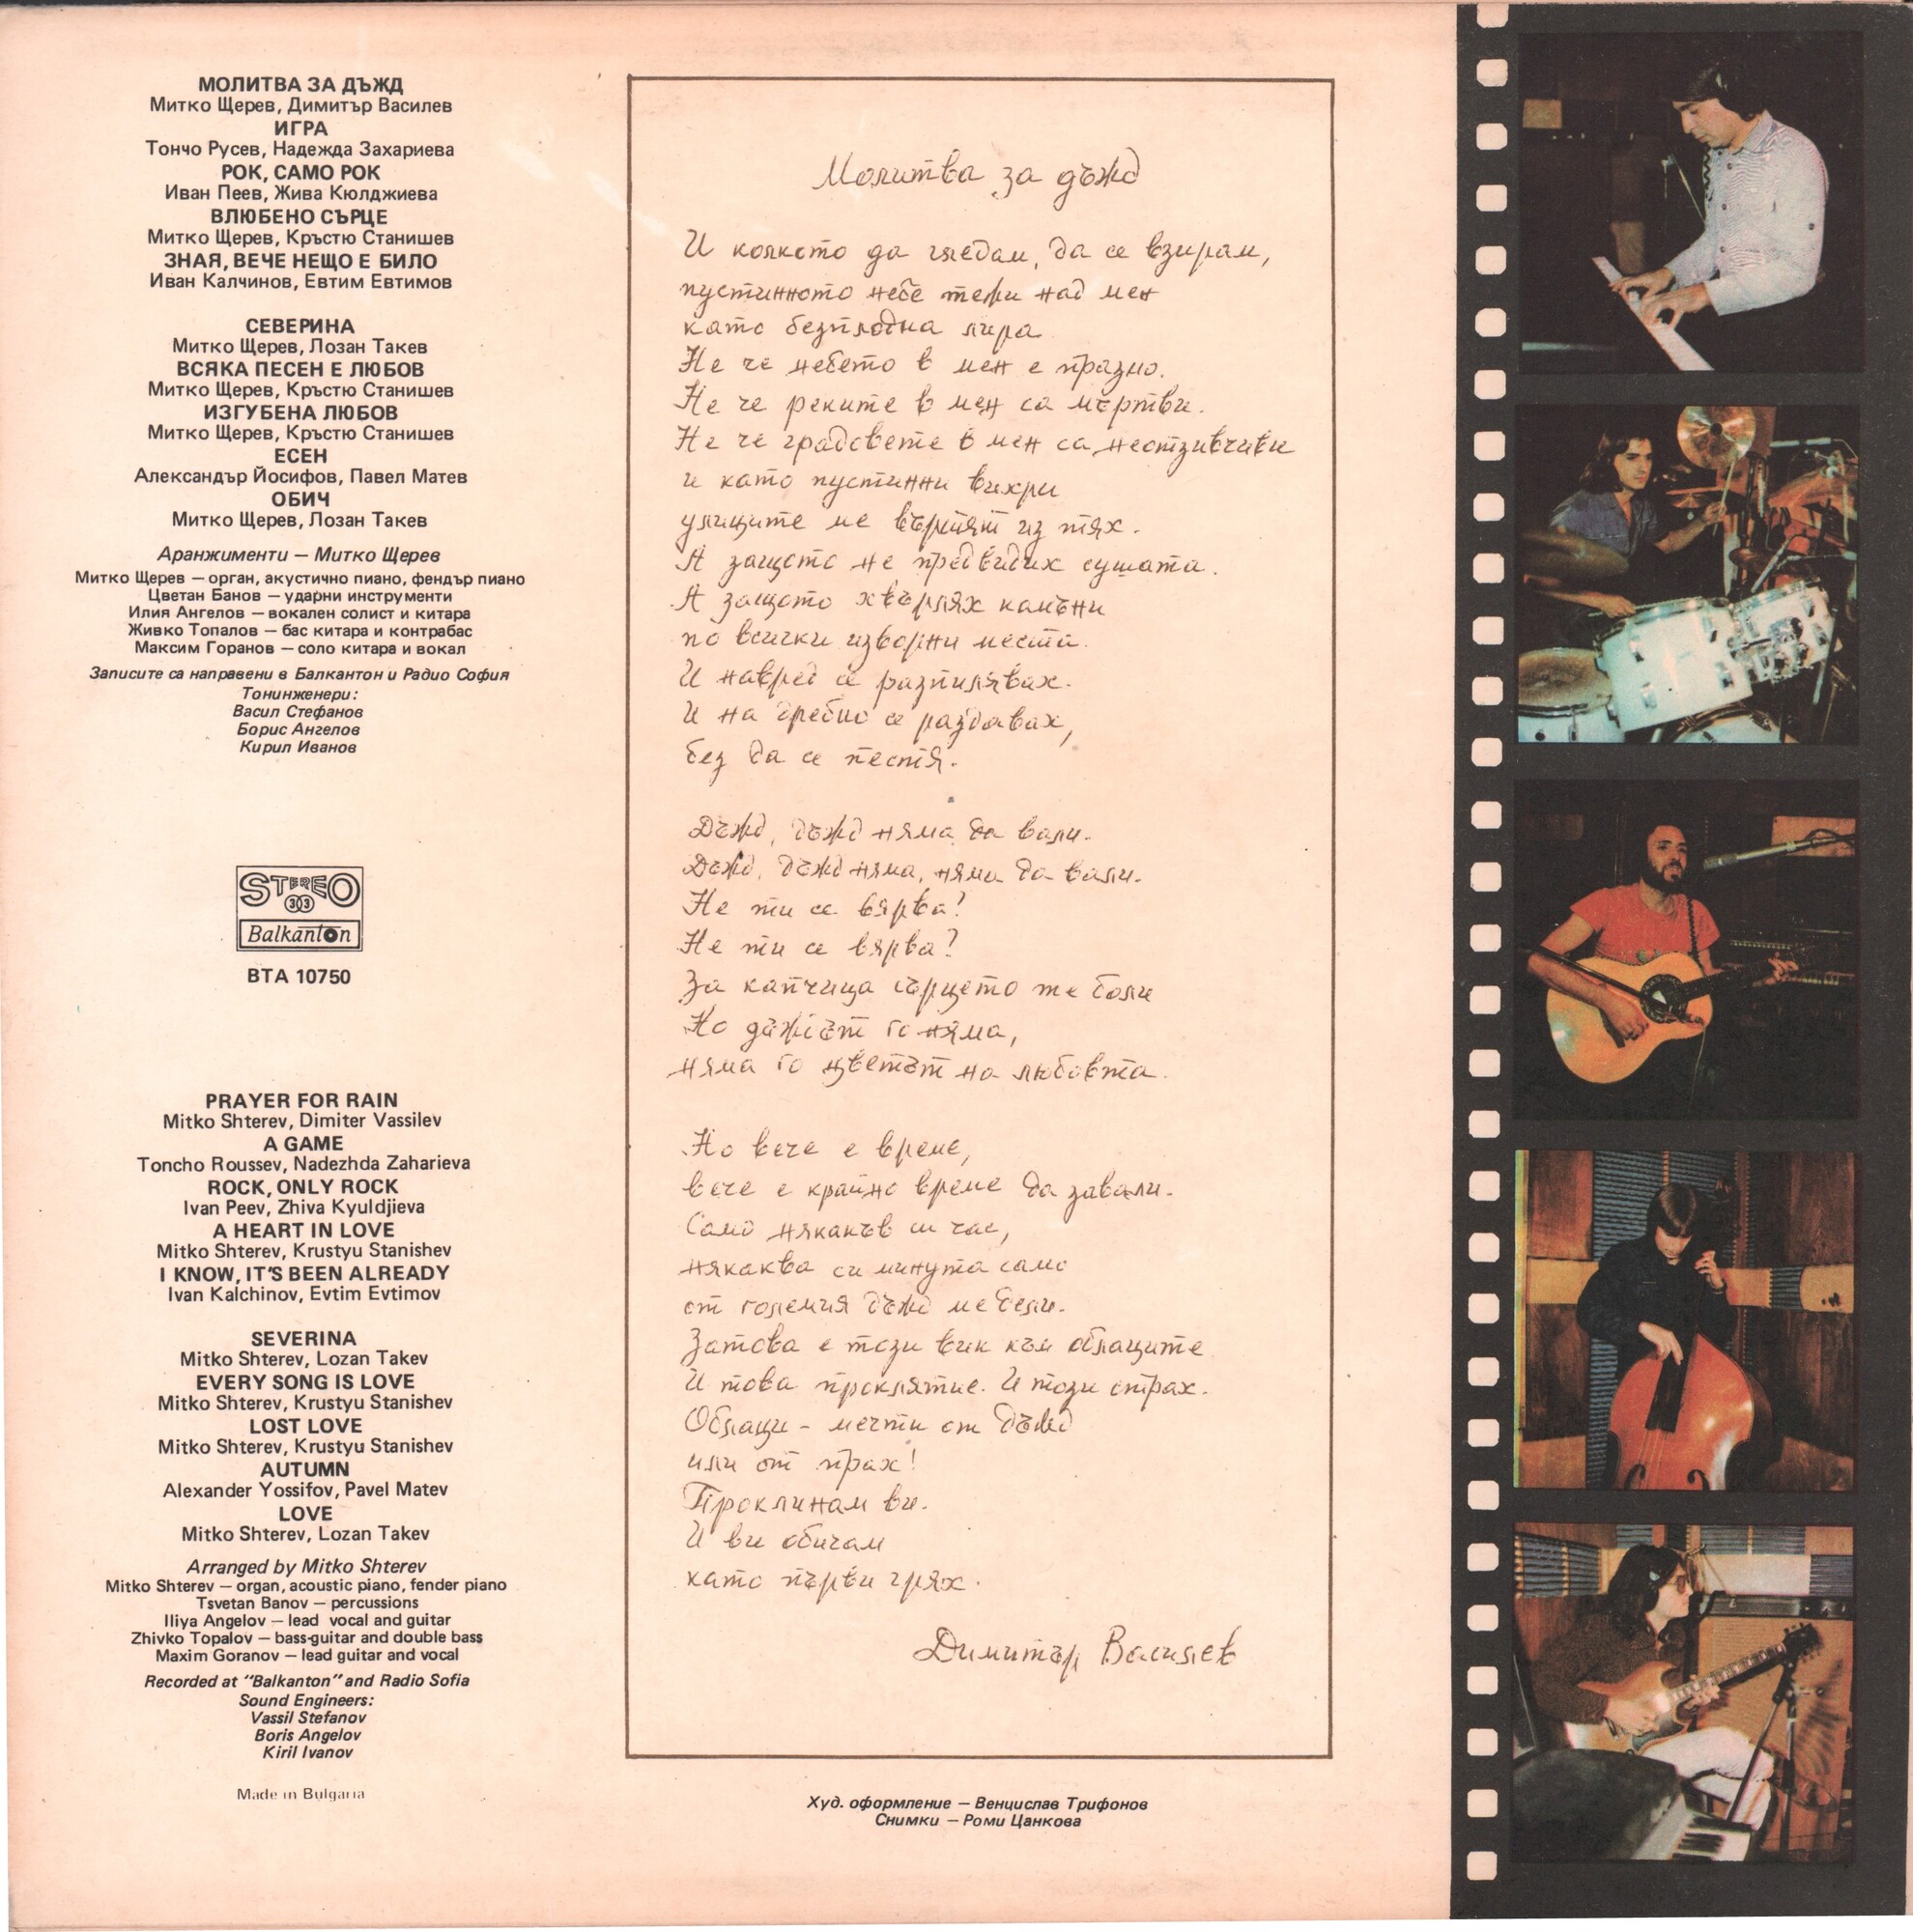 МОЛИТВА ЗА ДЪЖД
Митко Щерев, Димитър Василев
ИГРА
Тончо Русев, Надежда Захариева
РОК, САМО РОК
Иван Пеев, Жива Кюлджиева
ВЛЮБЕНО СЪРЦЕ
Митко Щерев, Кръстю Станишев
ЗНАЯ, ВЕЧЕ НЕЩО Е БИЛО
Иван Калчинов, Евтим Евтимов
СЕВЕРИНА
Митко Щерев, Лозан Такев
ВСЯКА ПЕСЕН Е ЛЮБОВ
Митко Щерев, Кръстю Станишев
ИЗГУБЕНА ЛЮБОВ
Митко Щерев, Кръстю Станишев
ЕСЕН
Александър Йосифов, Павел Матев
ОБИЧ
Митко Щерев, Лозан Такев
Аранжименти — Митко Щерев
Митко Щерев — орган, акустично пиано, фендър пиано
Цветан Банов — ударни инструменти
Илия Ангелов — вокален солист и китара
Живко Топалов — бас китара и контрабас
Максим Горанов — соло китара и вокал
Записите са направени в Балкантон и Радио София
Тонинженери:
Васил Стефанов
Борис Ангелов
Кирил Иванов
STEREO
33
Balkanton
ВТА 10750
PRAYER FOR RAIN
Mitko Shterev, Dimiter Vassilev
A GAME
Toncho Roussev, Nadezhda Zaharieva
ROCK, ONLY ROCK
Ivan Peev, Zhiva Kyuldjieva
A HEART IN LOVE
Mitko Shterev, Krustyu Stanishev
I KNOW, IT'S BEEN ALREADY
Ivan Kalchinov, Evtim Evtimov
SEVERINA
Mitko Shterev, Lozan Takev
EVERY SONG IS LOVE
Mitko Shterev, Krustyu Stanishev
LOST LOVE
Mitko Shterev, Krustyu Stanishev
AUTUMN
Alexander Yossifov, Pavel Matev
LOVE
Mitko Shterev, Lozan Takev
Arranged by Mitko Shterev
Mitko Shterev — organ, acoustic piano, fender piano
Tsvetan Banov — percussions
Iliya Angelov — lead vocal and guitar
Zhivko Topalov — bass-guitar and double bass
Maxim Goranov — lead guitar and vocal
Recorded at "Balkanton" and Radio Sofia
Sound Engineers:
Vassil Stefanov
Boris Angelov
Kiril Ivanov
Made in Bulgaria
Молитва за дъжд
И колкото да гледам, да се взирам,
пустинното небе тежи над мен
като безплодна лира.
Не че небето в мен е празно.
Не че реките в мен са мъртви.
Не че градовете в мен са неотзивчиви
и като пустинни вихри
улиците ме въртят из тях.
А защото не предвидих сушата.
А защото хвърлях камъни
по всички изворни места.
И навред се разпилявах.
И на дребно се раздавах,
без да се пестя.
Дъжд, дъжд няма да вали.
Дъжд, дъжд няма, няма да вали.
Не ти се вярва!
Не ти се вярва?
За капчица сърцето ще боли
Но дъждът го няма,
няма го цветът на любовта.
Но вече е време,
вече е крайно време да завали.
Само някакъв си час,
някаква си минута само
от големия дъжд ме дели.
Затова е този вик към облаците
И това проклятие. И този страх.
Облаци - мечти от дъжд
или от прах!
Проклинам ви.
И ви обичам
като първи грях.
Димитър Василев
Худ. оформление — Венцислав Трифонов
Снимки — Роми Цанкова